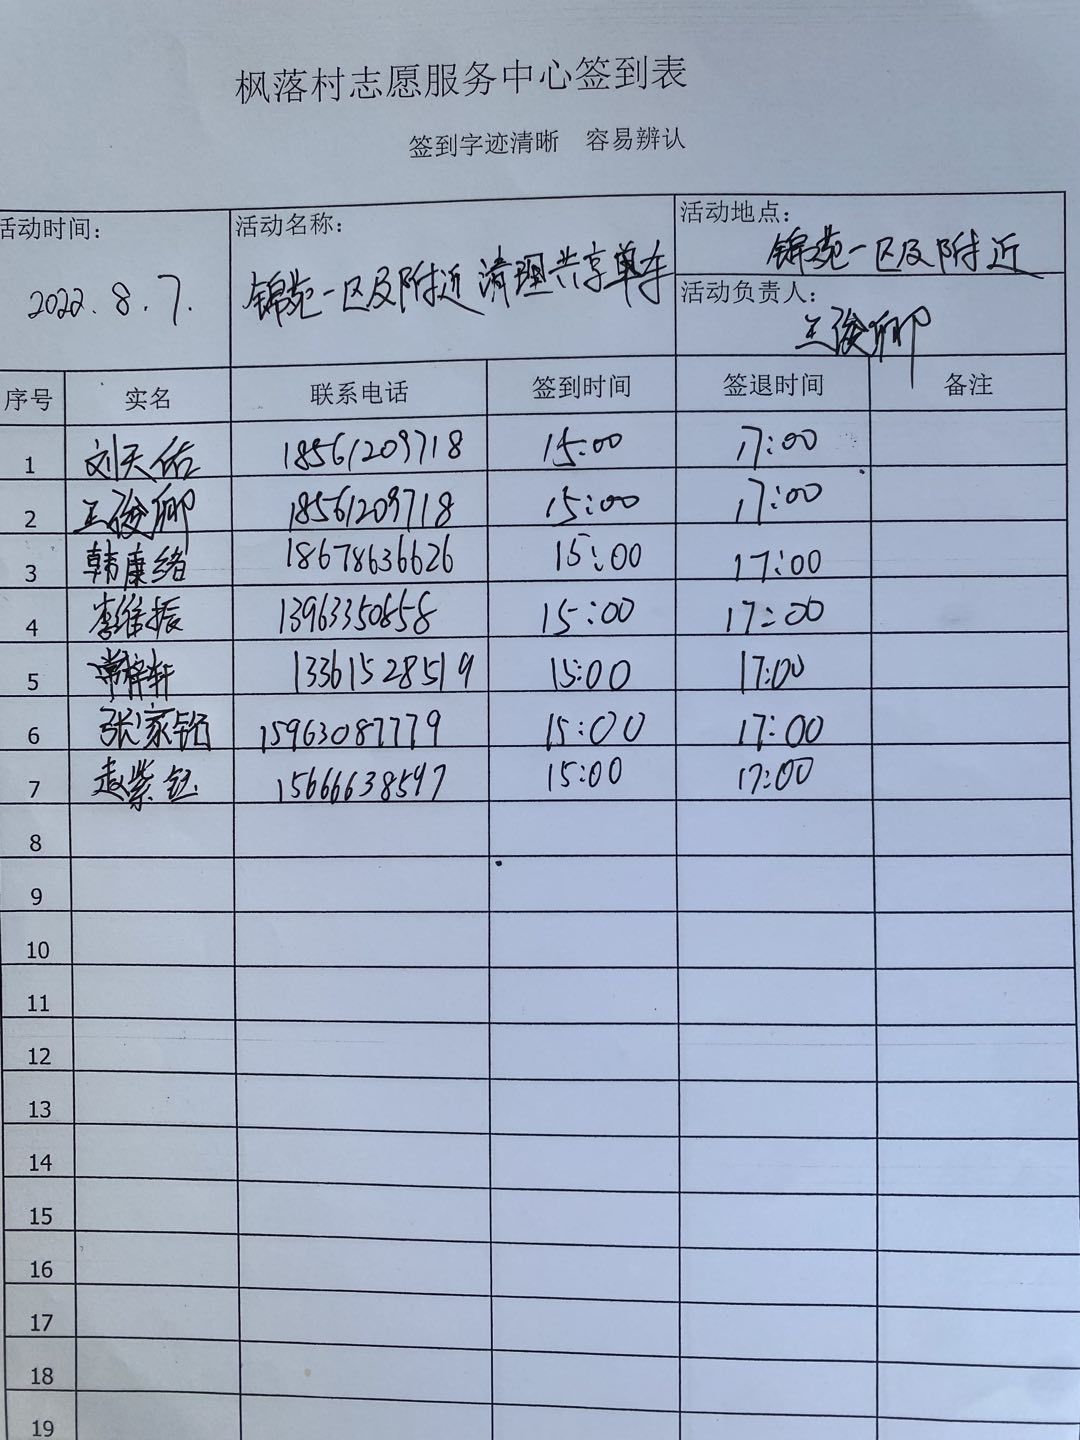 枫落村志愿服务中心签到表
签到字迹清晰 容易辨认
活动时间: 2022.8.7.
活动名称: 锦苑一区及附近清理共享单车
活动地点: 锦苑一区及附近
活动负责人: 王俊卿
序号 实名 联系电话 签到时间 签退时间 备注
1 刘天佑 18561209718 15:00 17:00
2 王俊卿 18561209718 15:00 17:00
3 韩康绪 18678636626 15:00 17:00
4 李维振 13963350858 15:00 17:00
5 13361528519 15:00 17:00
6 张家铭 15963087779 15:00 17:00
7 赵紫钰 15666638597 15:00 17:00
8
9
10
11
12
13
14
15
16
17
18
19